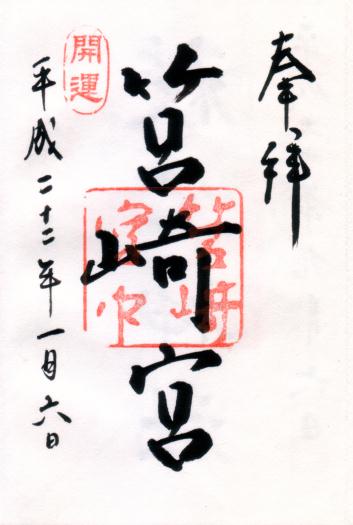 奉拝
筥崎宮
筥崎宮印
開運
平成二十二年一月六日